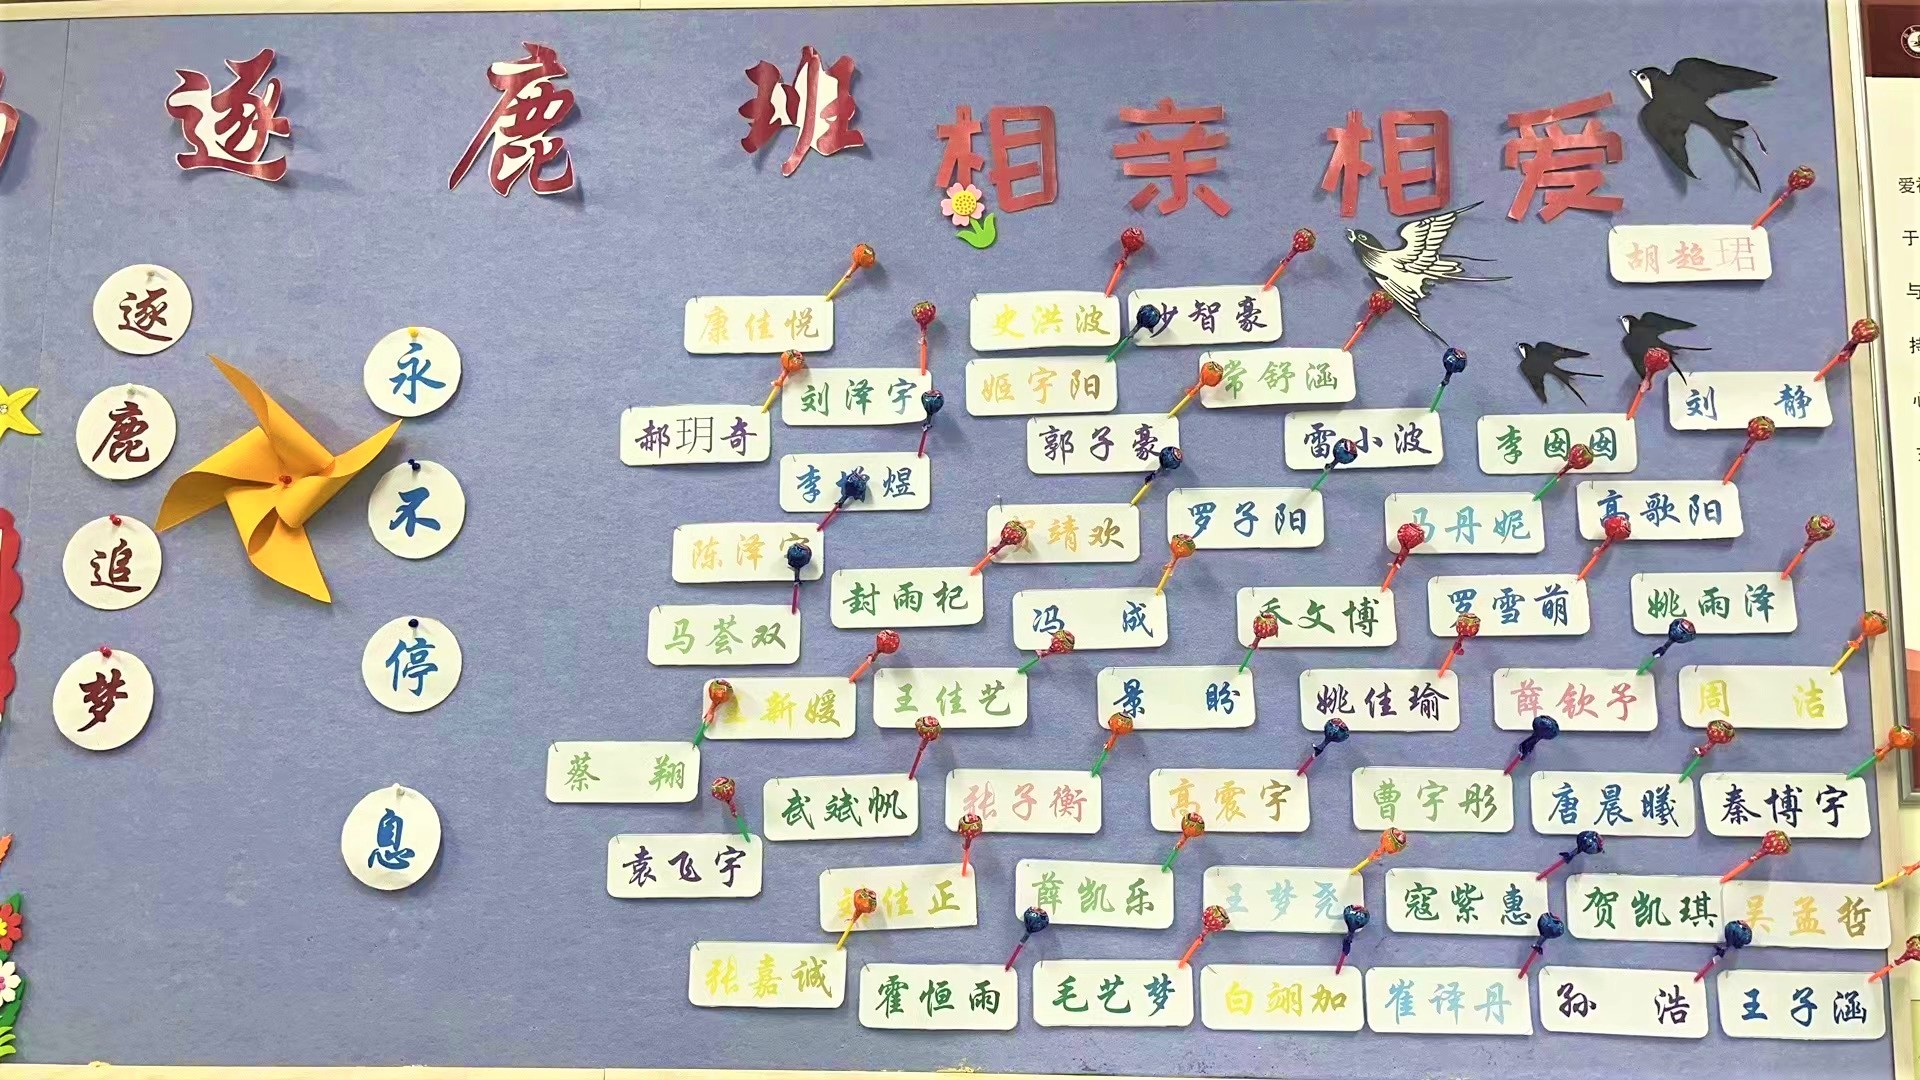 逐鹿班
相亲相爱
逐鹿追梦
永不停息
胡超珺
康佳悦
史洪波
智豪
刘泽宇
姬宇阳
常舒涵
刘 静
郝玥奇
郭子豪
雷小波
李囡囡
李 煜
靖欢
罗子阳
马丹妮
高歌阳
陈泽宇
封雨杞
冯 成
乔文博
罗雪萌
姚雨泽
马荟双
新媛
王佳艺
景 盼
姚佳瑜
薛钦予
周 洁
蔡 翔
武斌帆
张子衡
高震宇
曹宇彤
唐晨曦
秦博宇
袁飞宇
佳正
薛凯乐
王梦尧
寇紫惠
贺凯琪
吴孟哲
张嘉诚
霍恒雨
毛艺梦
白翊加
崔译丹
孙 浩
王子涵